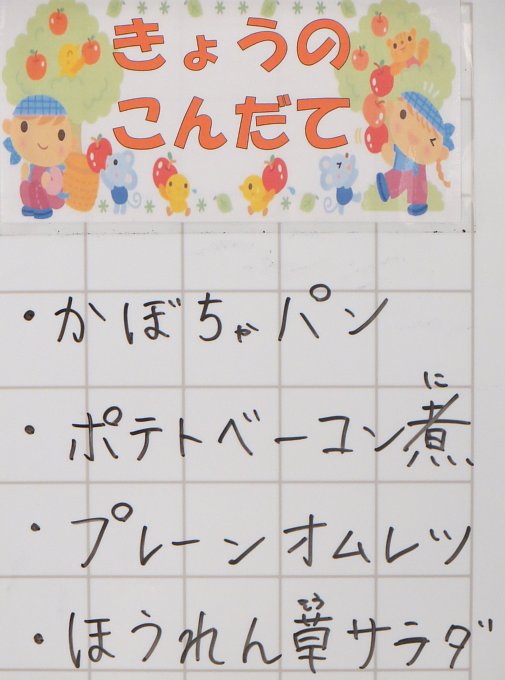 きょうの
こんだて
・かぼちゃパン
に
・ポテトベーコン煮
・プレーンオムレツ
そう
・ほうれん草サラダ